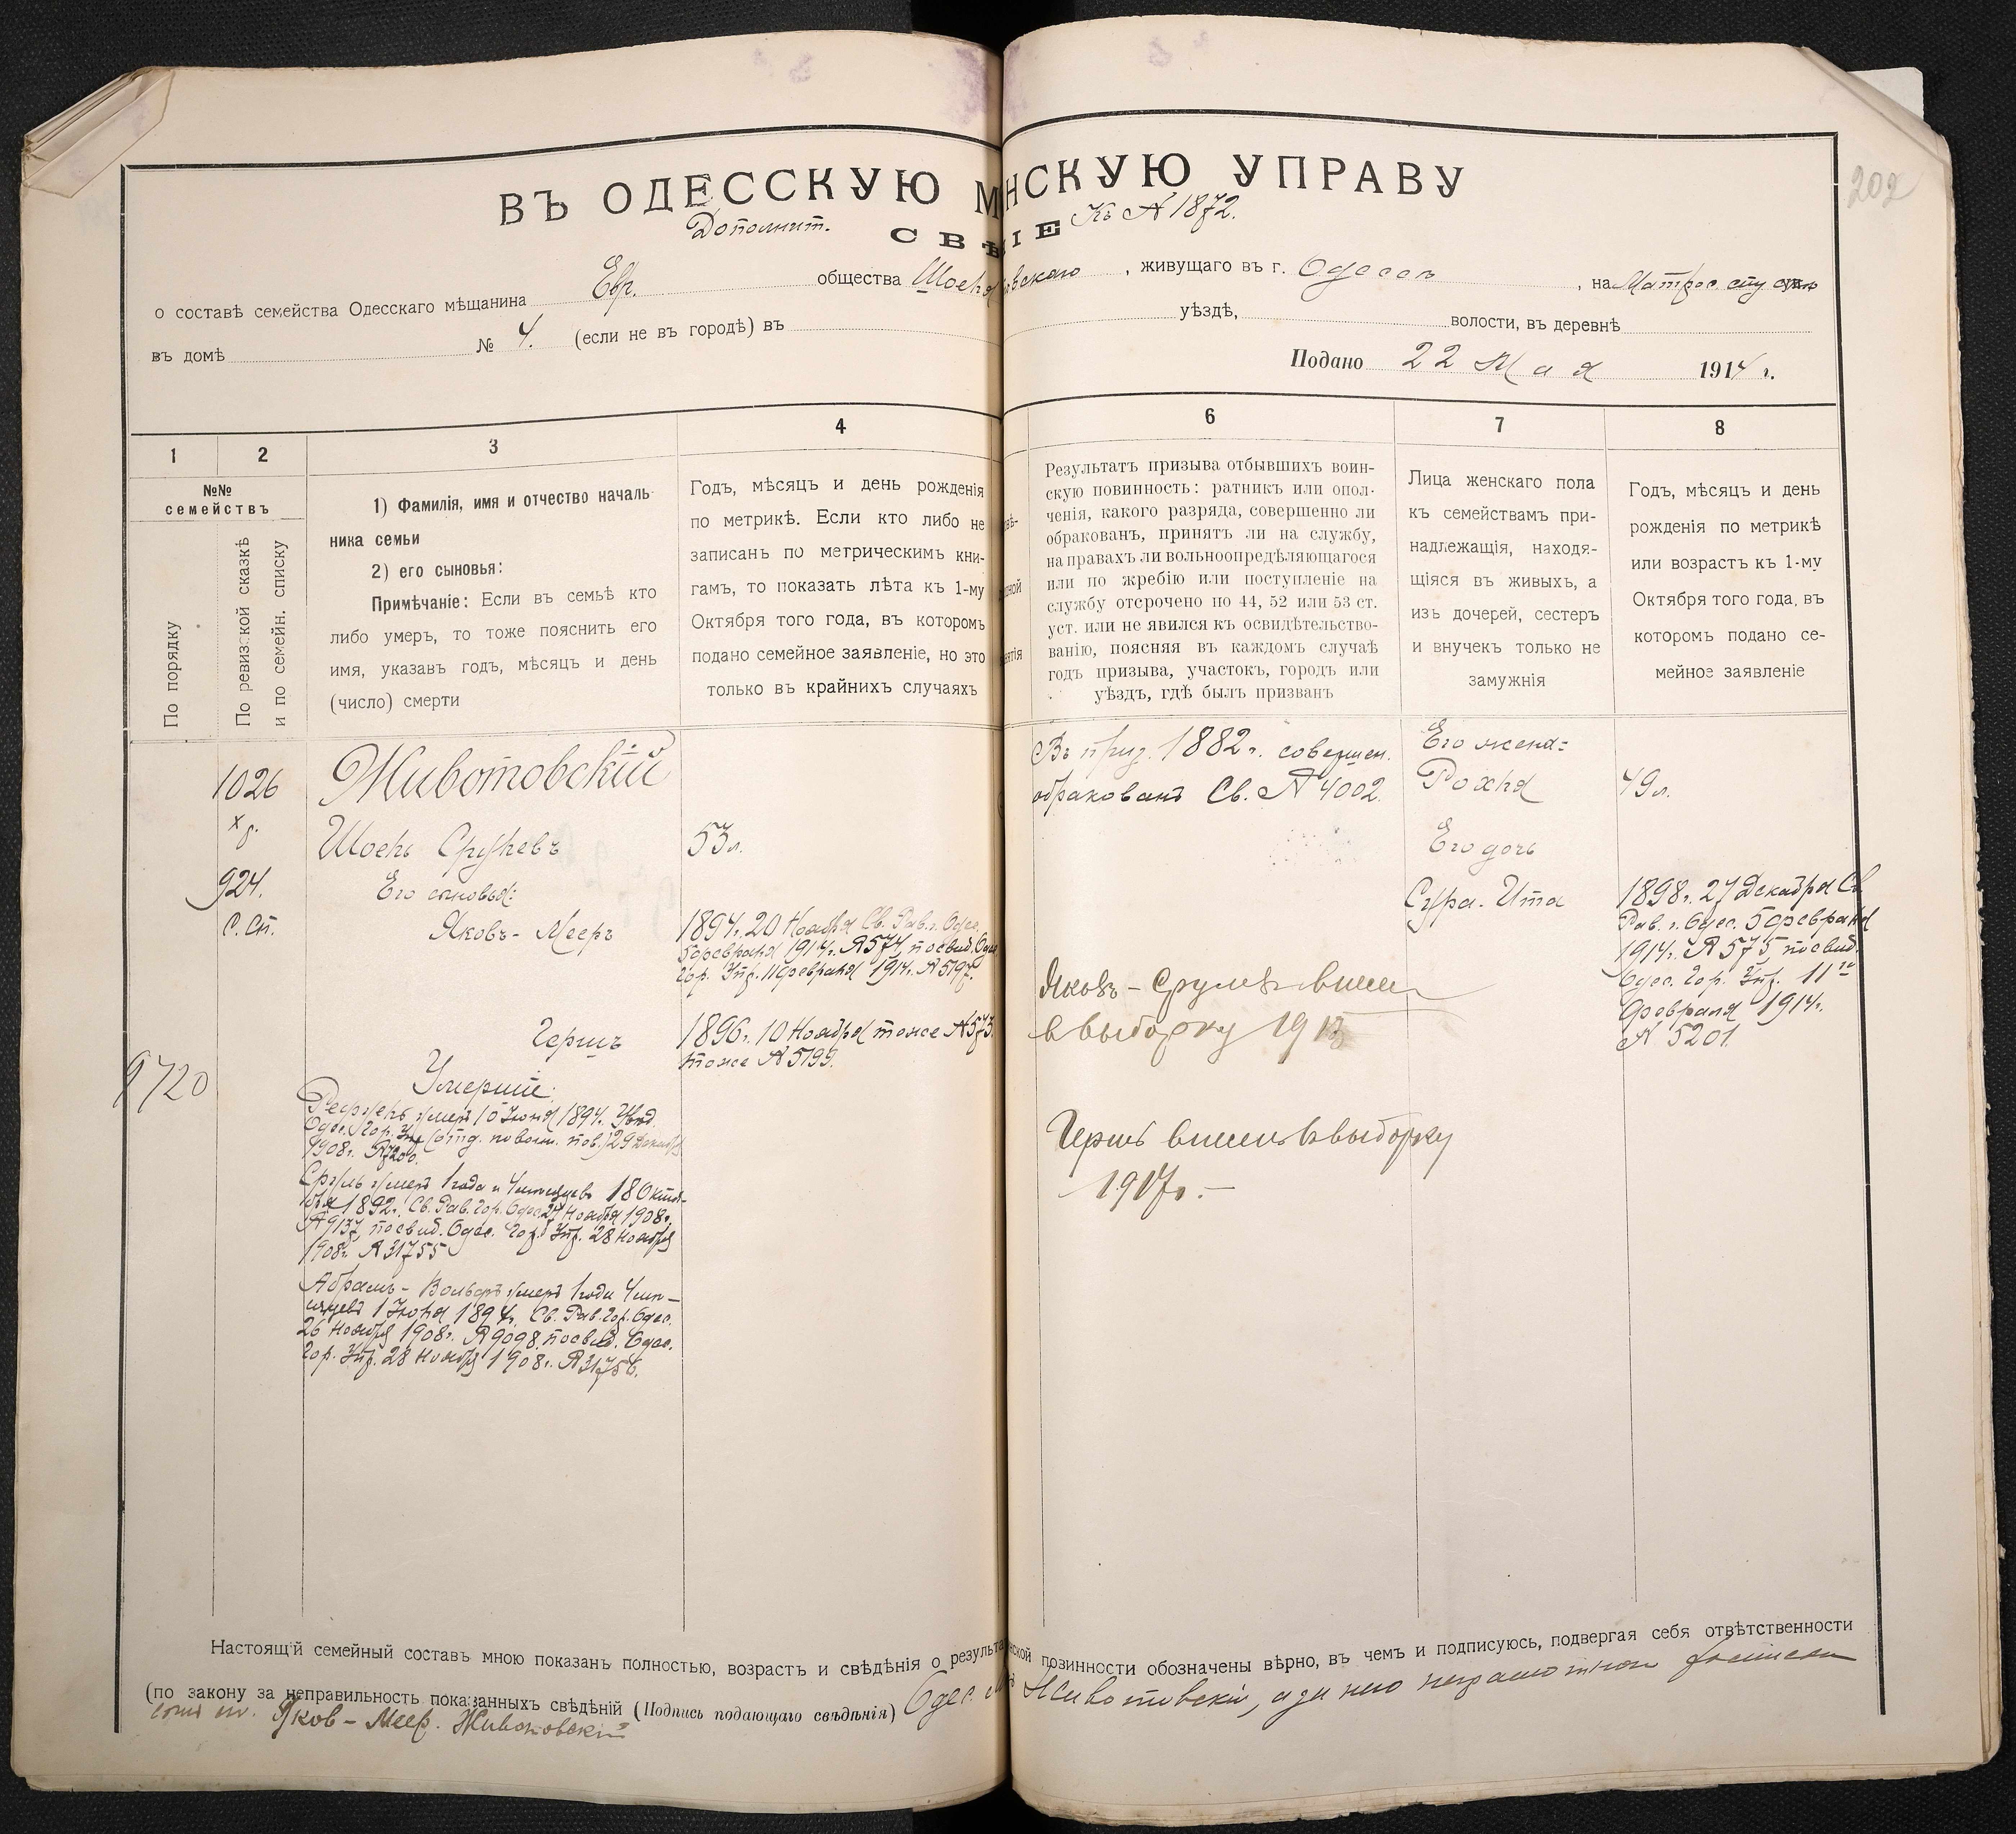 202
ВЪ ОДЕССКУЮ М НСКУЮ УПРАВУ
Дополнит. СВѢ ІЕ Къ № 1872.
о составѣ семейства Одесскаго мѣщанина Евр. общества , живущаго въ г. Одессѣ , на Матрос. сп.
въ домѣ № 4. (если не въ городѣ) въ уѣздѣ, волости, въ деревнѣ
Подано 22 Мая 1914 г.
1 2 3 4 6 7 8
№№ семействъ
По порядку
По ревизской сказкѣ и по семейн. списку
1) Фамилія, имя и отчество началь-
ника семьи
2) его сыновья:
Примѣчаніе: Если въ семьѣ кто
либо умеръ, то тоже пояснить его
имя, указавъ годъ, мѣсяцъ и день
(число) смерти
Годъ, мѣсяцъ и день рожденія
по метрикѣ. Если кто либо не
записанъ по метрическимъ кни-
гамъ, то показать лѣта къ 1-му
Октября того года, въ которомъ
подано семейное заявленіе, но это
только въ крайнихъ случаяхъ
Результатъ призыва отбывшихъ воин-
скую повинность: ратникъ или опол-
ченія, какого разряда, совершенно ли
обракованъ, принятъ ли на службу,
на правахъ ли вольноопредѣляющагося
или по жребію или поступленіе на
службу отсрочено по 44, 52 или 53 ст.
уст. или не явился къ освидѣтельство-
ванію, поясняя въ каждомъ случаѣ
годъ призыва, участокъ, городъ или
уѣздъ, гдѣ былъ призванъ
Лица женскаго пола
къ семействамъ при-
надлежащія, находя-
щіяся въ живыхъ, а
изъ дочерей, сестеръ
и внучекъ только не
замужнія
Годъ, мѣсяцъ и день
рожденія по метрикѣ
или возрастъ къ 1-му
Октября того года, въ
которомъ подано се-
мейное заявленіе
1026
924.
С. Сп.
9720
Животовскій
Шоель Срулевъ 53 л.
Его сыновья:
Яковъ-Мееръ 1894 г. 20 Ноября Св. Рав. г. Одес.
5 февраля 1914 г. № 574, по свид. Одес.
Гор. Упр. 11 февраля 1914 г. № 5197.
Гершъ 1896 г. 10 Ноября тоже № 573
тоже № 5199.
Умершіе:
умер 10 Іюня 1894 г. Увѣд.
Одес. Гор. Упр. (отд. по воин. пов.) 29 Декабря
1908 г. № 7200.
Сруль умер 1 года и 4 мѣсяцевъ 18 Октя-
бря 1892 г. Св. Рав. Гор. Одес. 27 Ноября 1908 г.
№ 9137, по свид. Одес. Гор. Упр. 28 Ноября
1908 г. № 31755
Абрамъ-Вольфъ умер 1 года 4 мѣ-
сяцевъ 1 Іюня 1894 г. Св. Рав. Гор. Одес.
26 Ноября 1908 г. № 9098, по свид. Одес.
Гор. Упр. 28 Ноября 1908 г. № 31756.
Въ приз. 1882 г. совершен.
обракованъ Св. № 4002.
Яковъ-Срулев внесен
в выборку 19
Гершъ внесенъ в выборку
1917 г.
Его жена:
Рохля 49 л.
Его дочь
Сура-Ита 1898 г. 27 Декабря Св.
Рав. г. Одес. 5 февраля
1914 г. № 575, по свид.
Одес. Гор. Упр. 11го
февраля 1914 г.
№ 5201.
Настоящій семейный составъ мною показанъ полностью, возрастъ и свѣдѣнія о результа нской повинности обозначены вѣрно, въ чемъ и подписуюсь, подвергая себя отвѣтственности
(по закону за неправильность показанныхъ свѣдѣній (Подпись подающаго свѣдѣнія) Одес. Животовскій, а за него неграмотного росписался
Яков-Меер. Животовскій